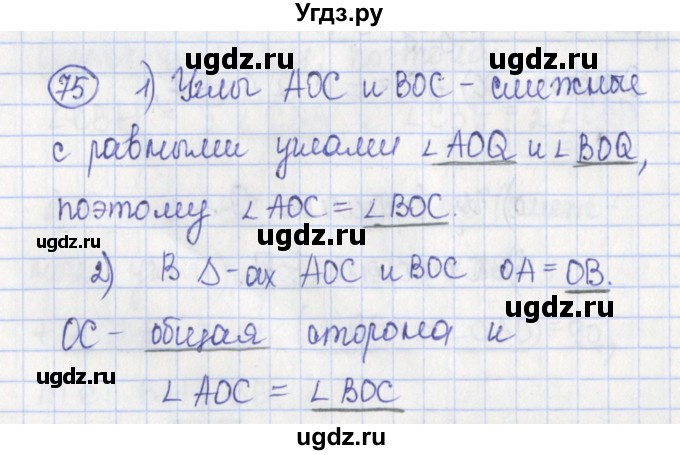 Угдз.ру
ugdz.ru ugdz.ru
75 1) Углы AOC и BOC - смежные
с равными углами ∠AOQ и ∠BOQ,
ugdz.ru ugdz.ru
поэтому ∠AOC = ∠BOC.
ugdz.ru
2) В Δ-ах AOC и BOC OA = OB.
ugdz.ru
OC - общая сторона и
ugdz.ru ugdz.ru
∠AOC = ∠BOC
ugdz.ru